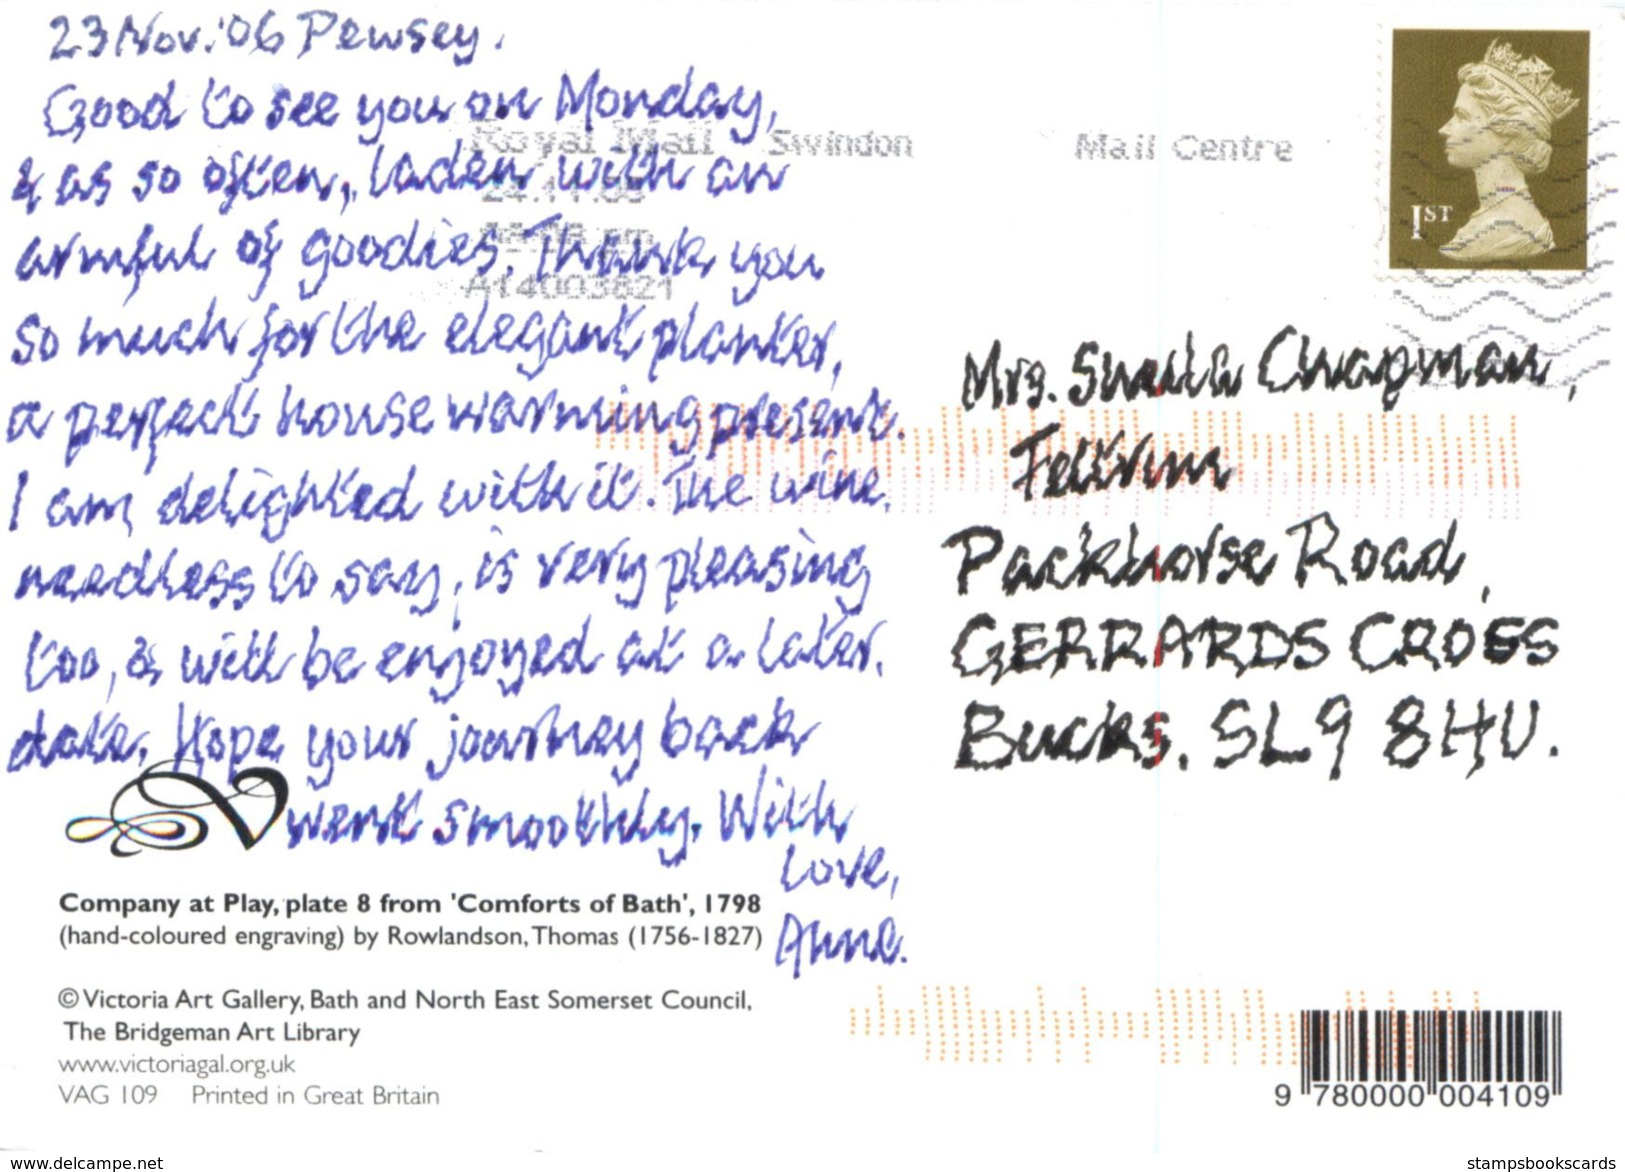 23 Nov. '06 Pewsey.
Good to see you on Monday,
& as so often, laden with an
armful of goodies. Thank you
so much for the elegant planter,
a perfect house warming present.
I am delighted with it. The wine,
needless to say, is very pleasing
too, & will be enjoyed at a later
date. Hope your journey back
went smoothly. With
Love,
Anne.
Royal Mail Swindon Mail Centre
24.11.06
pm
A14003821
1ST
Mrs. Sheila Chapman,
Packhorse Road,
GERRARDS CROSS
Bucks. SL9 8HU.
Company at Play, plate 8 from 'Comforts of Bath', 1798
(hand-coloured engraving) by Rowlandson, Thomas (1756-1827)
© Victoria Art Gallery, Bath and North East Somerset Council,
The Bridgeman Art Library
www.victoriagal.org.uk
VAG 109 Printed in Great Britain
9 780000 004109
www.delcampe.net
stampsbookscards